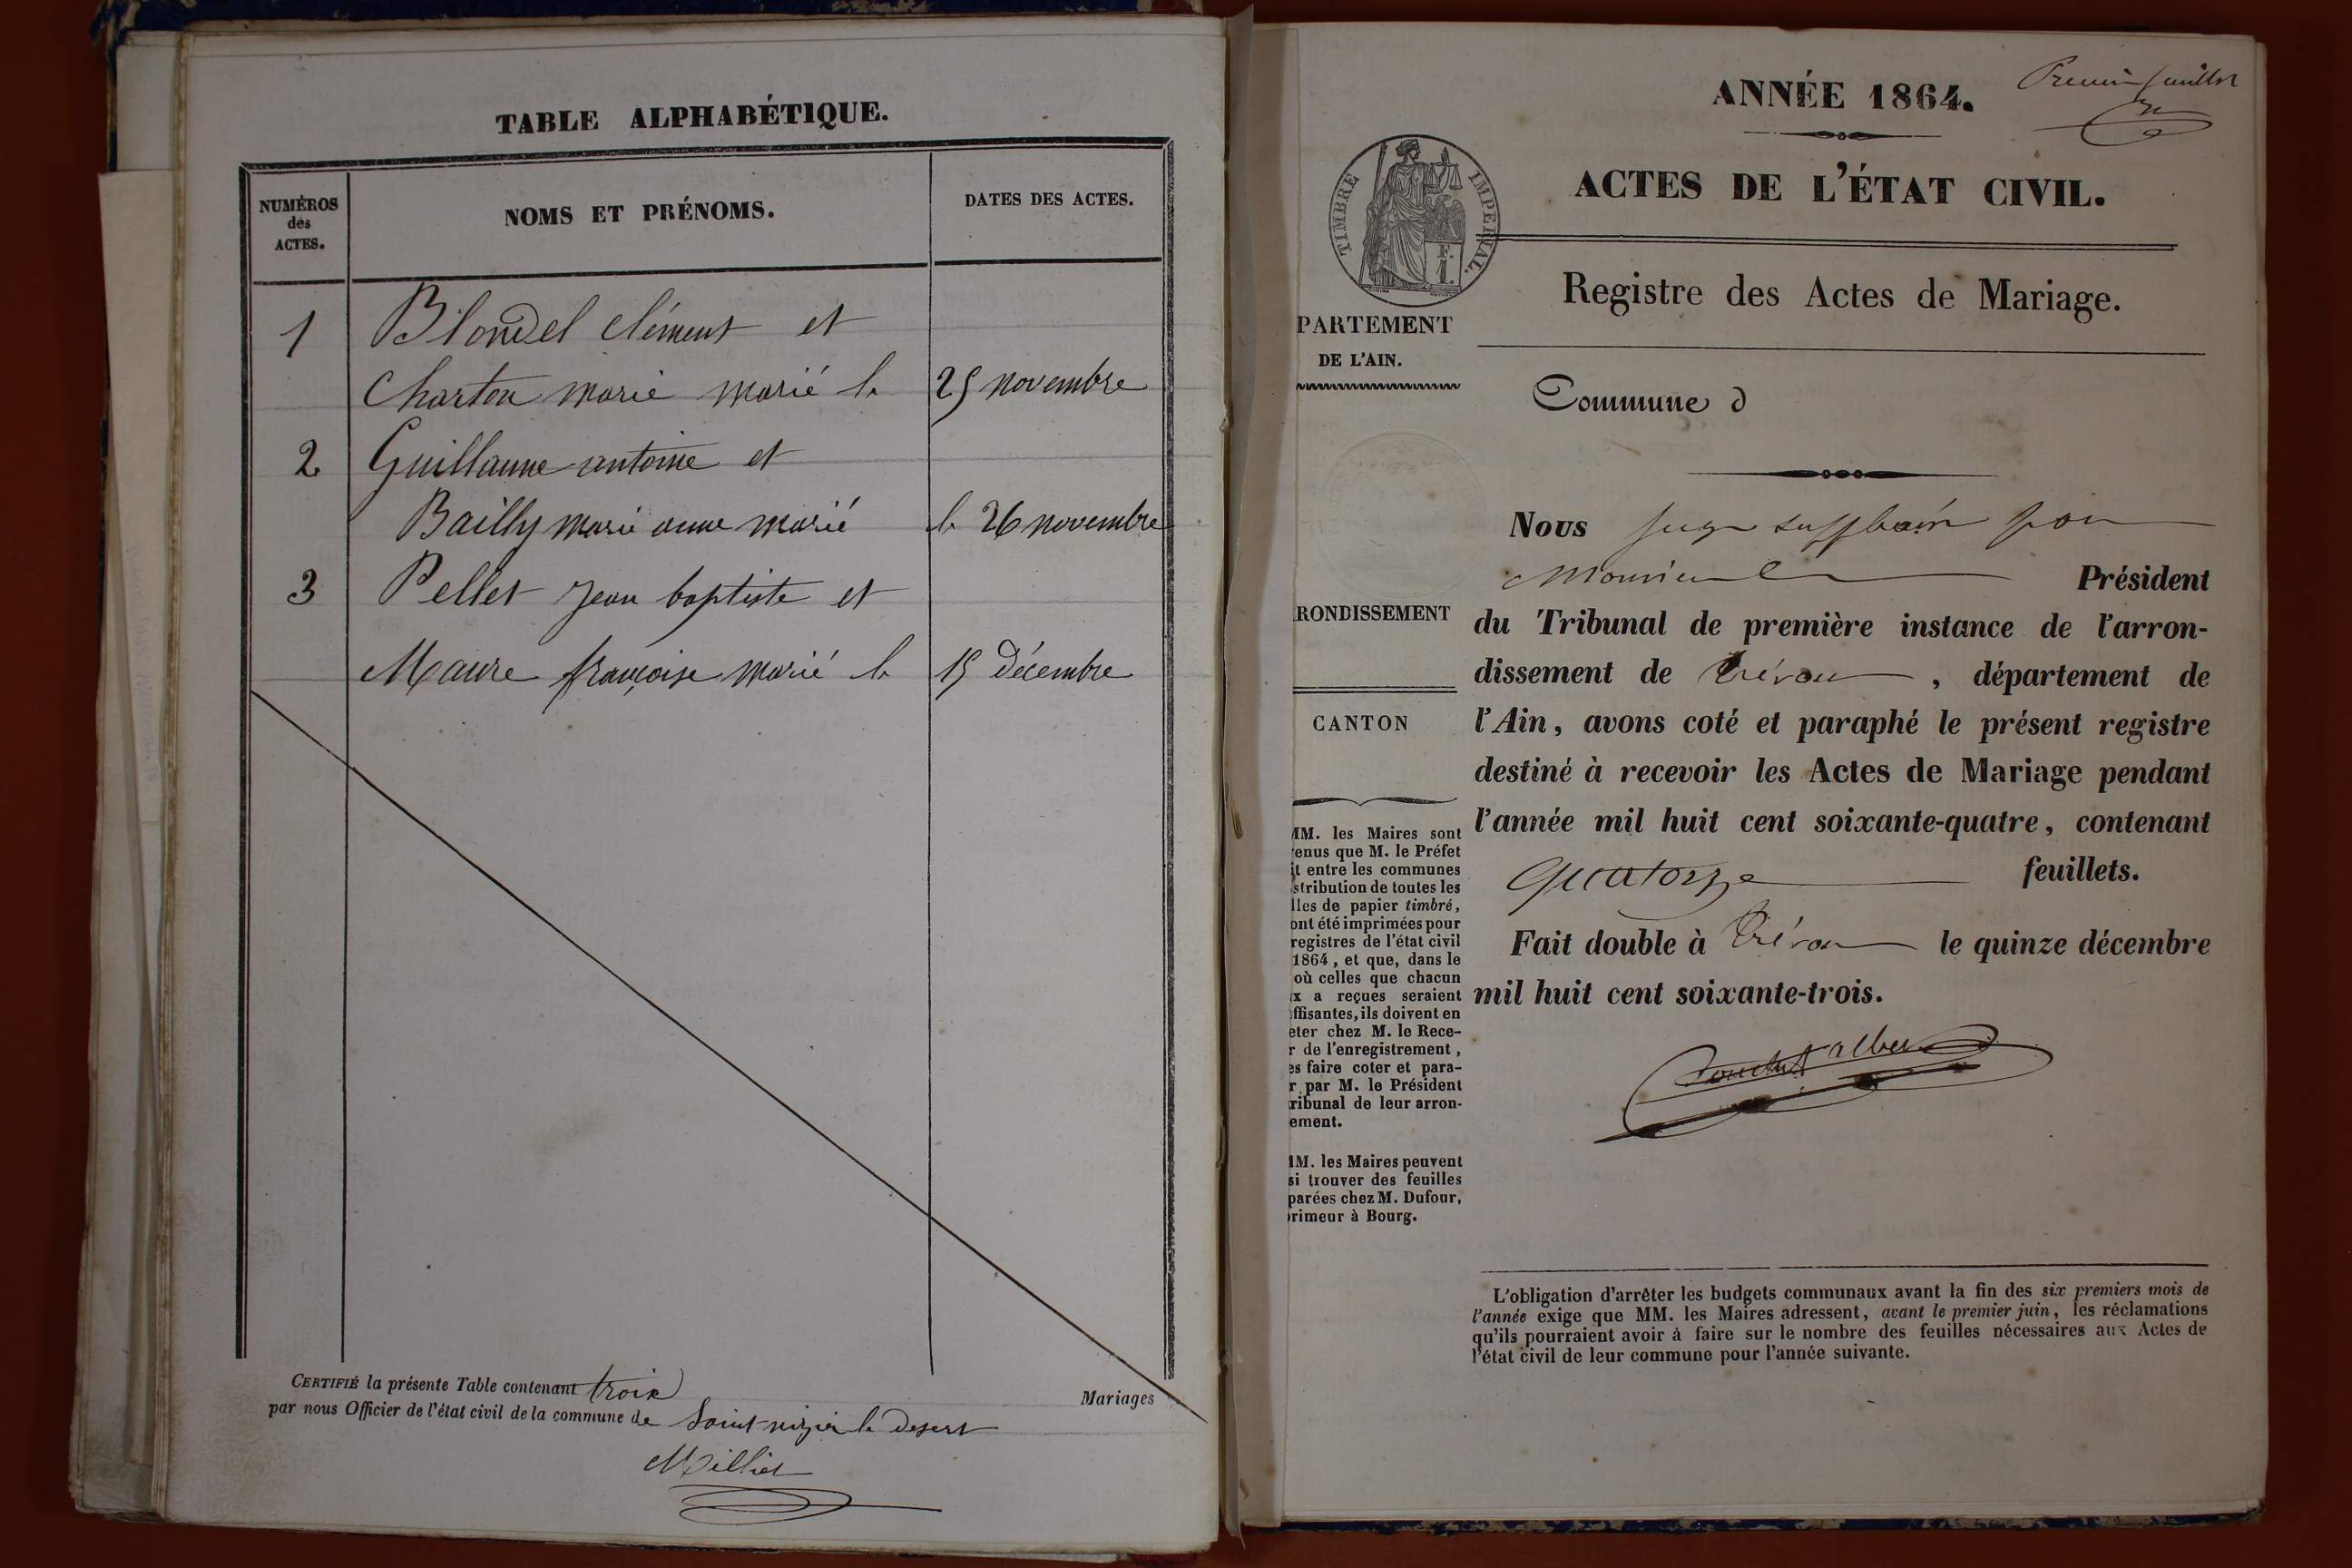 TABLE ALPHABÉTIQUE.
NUMÉROS
des
ACTES.
NOMS ET PRÉNOMS.
DATES DES ACTES.
1 Blondel clément et
Charton marie marié le 25 novembre
2 Guillaume antoine et
Bailly marie anne marié le 26 novembre
3 Pellet jean baptiste et
Maure françoise marié le 15 décembre
CERTIFIÉ la présente Table contenant trois Mariages
par nous Officier de l'état civil de la commune de Saint nizier le desert
Milliet
Premier feuillet
ANNÉE 1864.
ACTES DE L'ÉTAT CIVIL.
TIMBRE IMPERIAL.
F.
1.
Registre des Actes de Mariage.
PARTEMENT
DE L'AIN.
Commune d
Nous juge suppléant pour
Monsieur le Président
RONDISSEMENT
du Tribunal de première instance de l'arron-
dissement de Trévoux, département de
CANTON
l'Ain, avons coté et paraphé le présent registre
destiné à recevoir les Actes de Mariage pendant
l'année mil huit cent soixante-quatre, contenant
quatorze feuillets.
Fait double à Trévoux le quinze décembre
mil huit cent soixante-trois.
MM. les Maires sont
enus que M. le Préfet
it entre les communes
stribution de toutes les
lles de papier timbré,
ont été imprimées pour
registres de l'état civil
1864, et que, dans le
où celles que chacun
x a reçues seraient
ffisantes, ils doivent en
eter chez M. le Rece-
r de l'enregistrement,
es faire coter et para-
r par M. le Président
ribunal de leur arron-
ement.
MM. les Maires peuvent
si trouver des feuilles
parées chez M. Dufour,
rimeur à Bourg.
L'obligation d'arrêter les budgets communaux avant la fin des six premiers mois de
l'année exige que MM. les Maires adressent, avant le premier juin, les réclamations
qu'ils pourraient avoir à faire sur le nombre des feuilles nécessaires aux Actes de
l'état civil de leur commune pour l'année suivante.